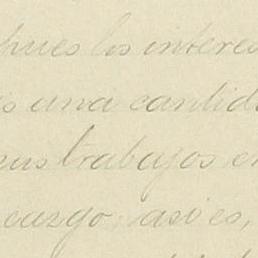 pues los interes
s una cantida
sus trabajos en
cargo, asi es,